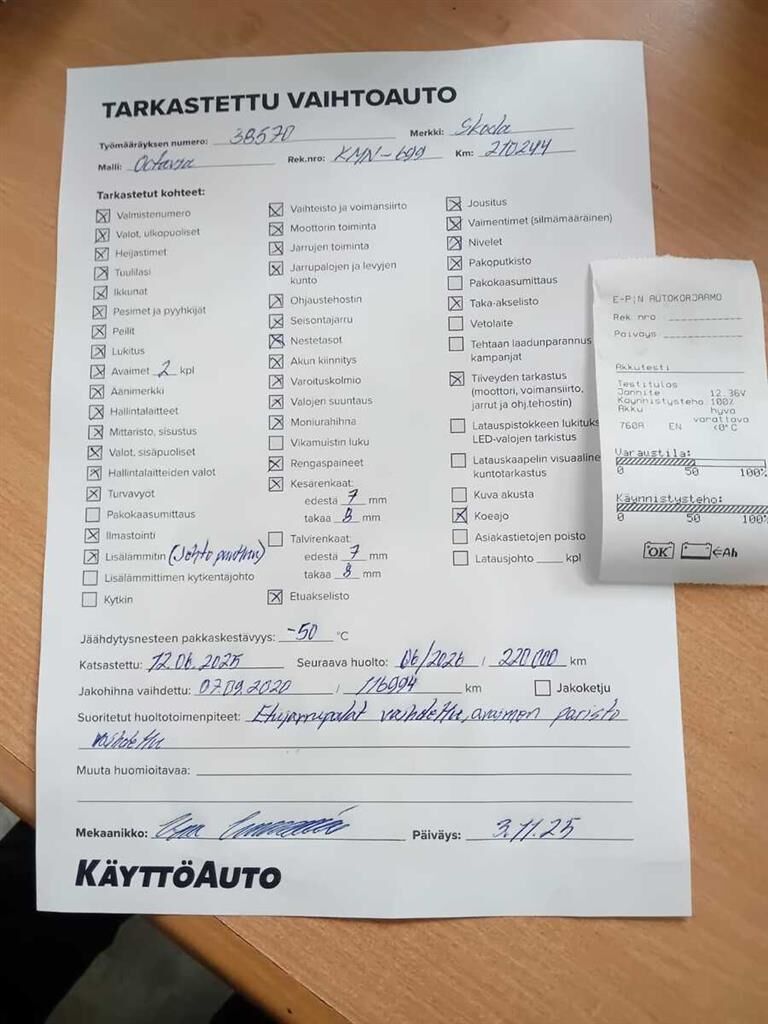 TARKASTETTU VAIHTOAUTO
Työmääräyksen numero: 38570 Merkki: Skoda
Malli: Octavia Rek.nro: KMN-699 Km: 210244
Tarkastetut kohteet:
Valmistenumero
Valot, ulkopuoliset
Heijastimet
Tuulilasi
Ikkunat
Pesimet ja pyyhkijät
Peilit
Lukitus
Avaimet 2 kpl
Äänimerkki
Hallintalaitteet
Mittaristo, sisustus
Valot, sisäpuoliset
Hallintalaitteiden valot
Turvavyöt
Pakokaasumittaus
Ilmastointi
Lisälämmitin (Johto puuttuu)
Lisälämmittimen kytkentäjohto
Kytkin
Vaihteisto ja voimansiirto
Moottorin toiminta
Jarrujen toiminta
Jarrupalojen ja levyjen
kunto
Ohjaustehostin
Seisontajarru
Nestetasot
Akun kiinnitys
Varoituskolmio
Valojen suuntaus
Moniurahihna
Vikamuistin luku
Rengaspaineet
Kesärenkaat:
edestä 7 mm
takaa 8 mm
Talvirenkaat:
edestä 7 mm
takaa 8 mm
Etuakselisto
Jousitus
Vaimentimet (silmämääräinen)
Nivelet
Pakoputkisto
Pakokaasumittaus
Taka-akselisto
Vetolaite
Tehtaan laadunparannus
kampanjat
Tiiveyden tarkastus
(moottori, voimansiirto,
jarrut ja ohj.tehostin)
Latauspistokkeen lukituks
LED-valojen tarkistus
Latauskaapelin visuaaline
kuntotarkastus
Kuva akusta
Koeajo
Asiakastietojen poisto
Latausjohto ____ kpl
Jäähdytysnesteen pakkaskestävyys: -50 °C
Katsastettu: 12.06.2025 Seuraava huolto: 06/2026 / 220 000 km
Jakohihna vaihdettu: 07.09.2020 / 116994 km Jakoketju
Suoritetut huoltotoimenpiteet: Etujarrupalat vaihdettu, avaimen paristo
vaihdettu
Muuta huomioitavaa:
Mekaanikko: Päiväys: 3.11.25
KÄYTTÖAUTO
E-P:N AUTOKORJAAMO
Rek.nro
Päiväys
Akkutesti
Testitulos
Jännite 12.36V
Käynnistysteho 100%
Akku hyvä
varattava
760A EN <0°C
Varaustila:
0 50 100%
Käynnistysteho:
0 50 100%
OK ←Ah